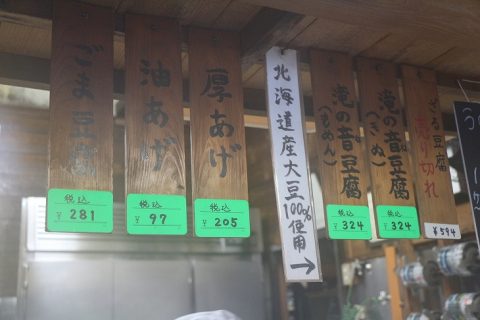 ごま豆腐
税込
¥281
油あげ
税込
¥97
厚あげ
税込
¥205
北海道産大豆100%使用→
滝の音豆腐
(もめん)
税込
¥324
滝の音豆腐
(きぬ)
税込
¥324
ざる豆腐
売り切れ
¥594